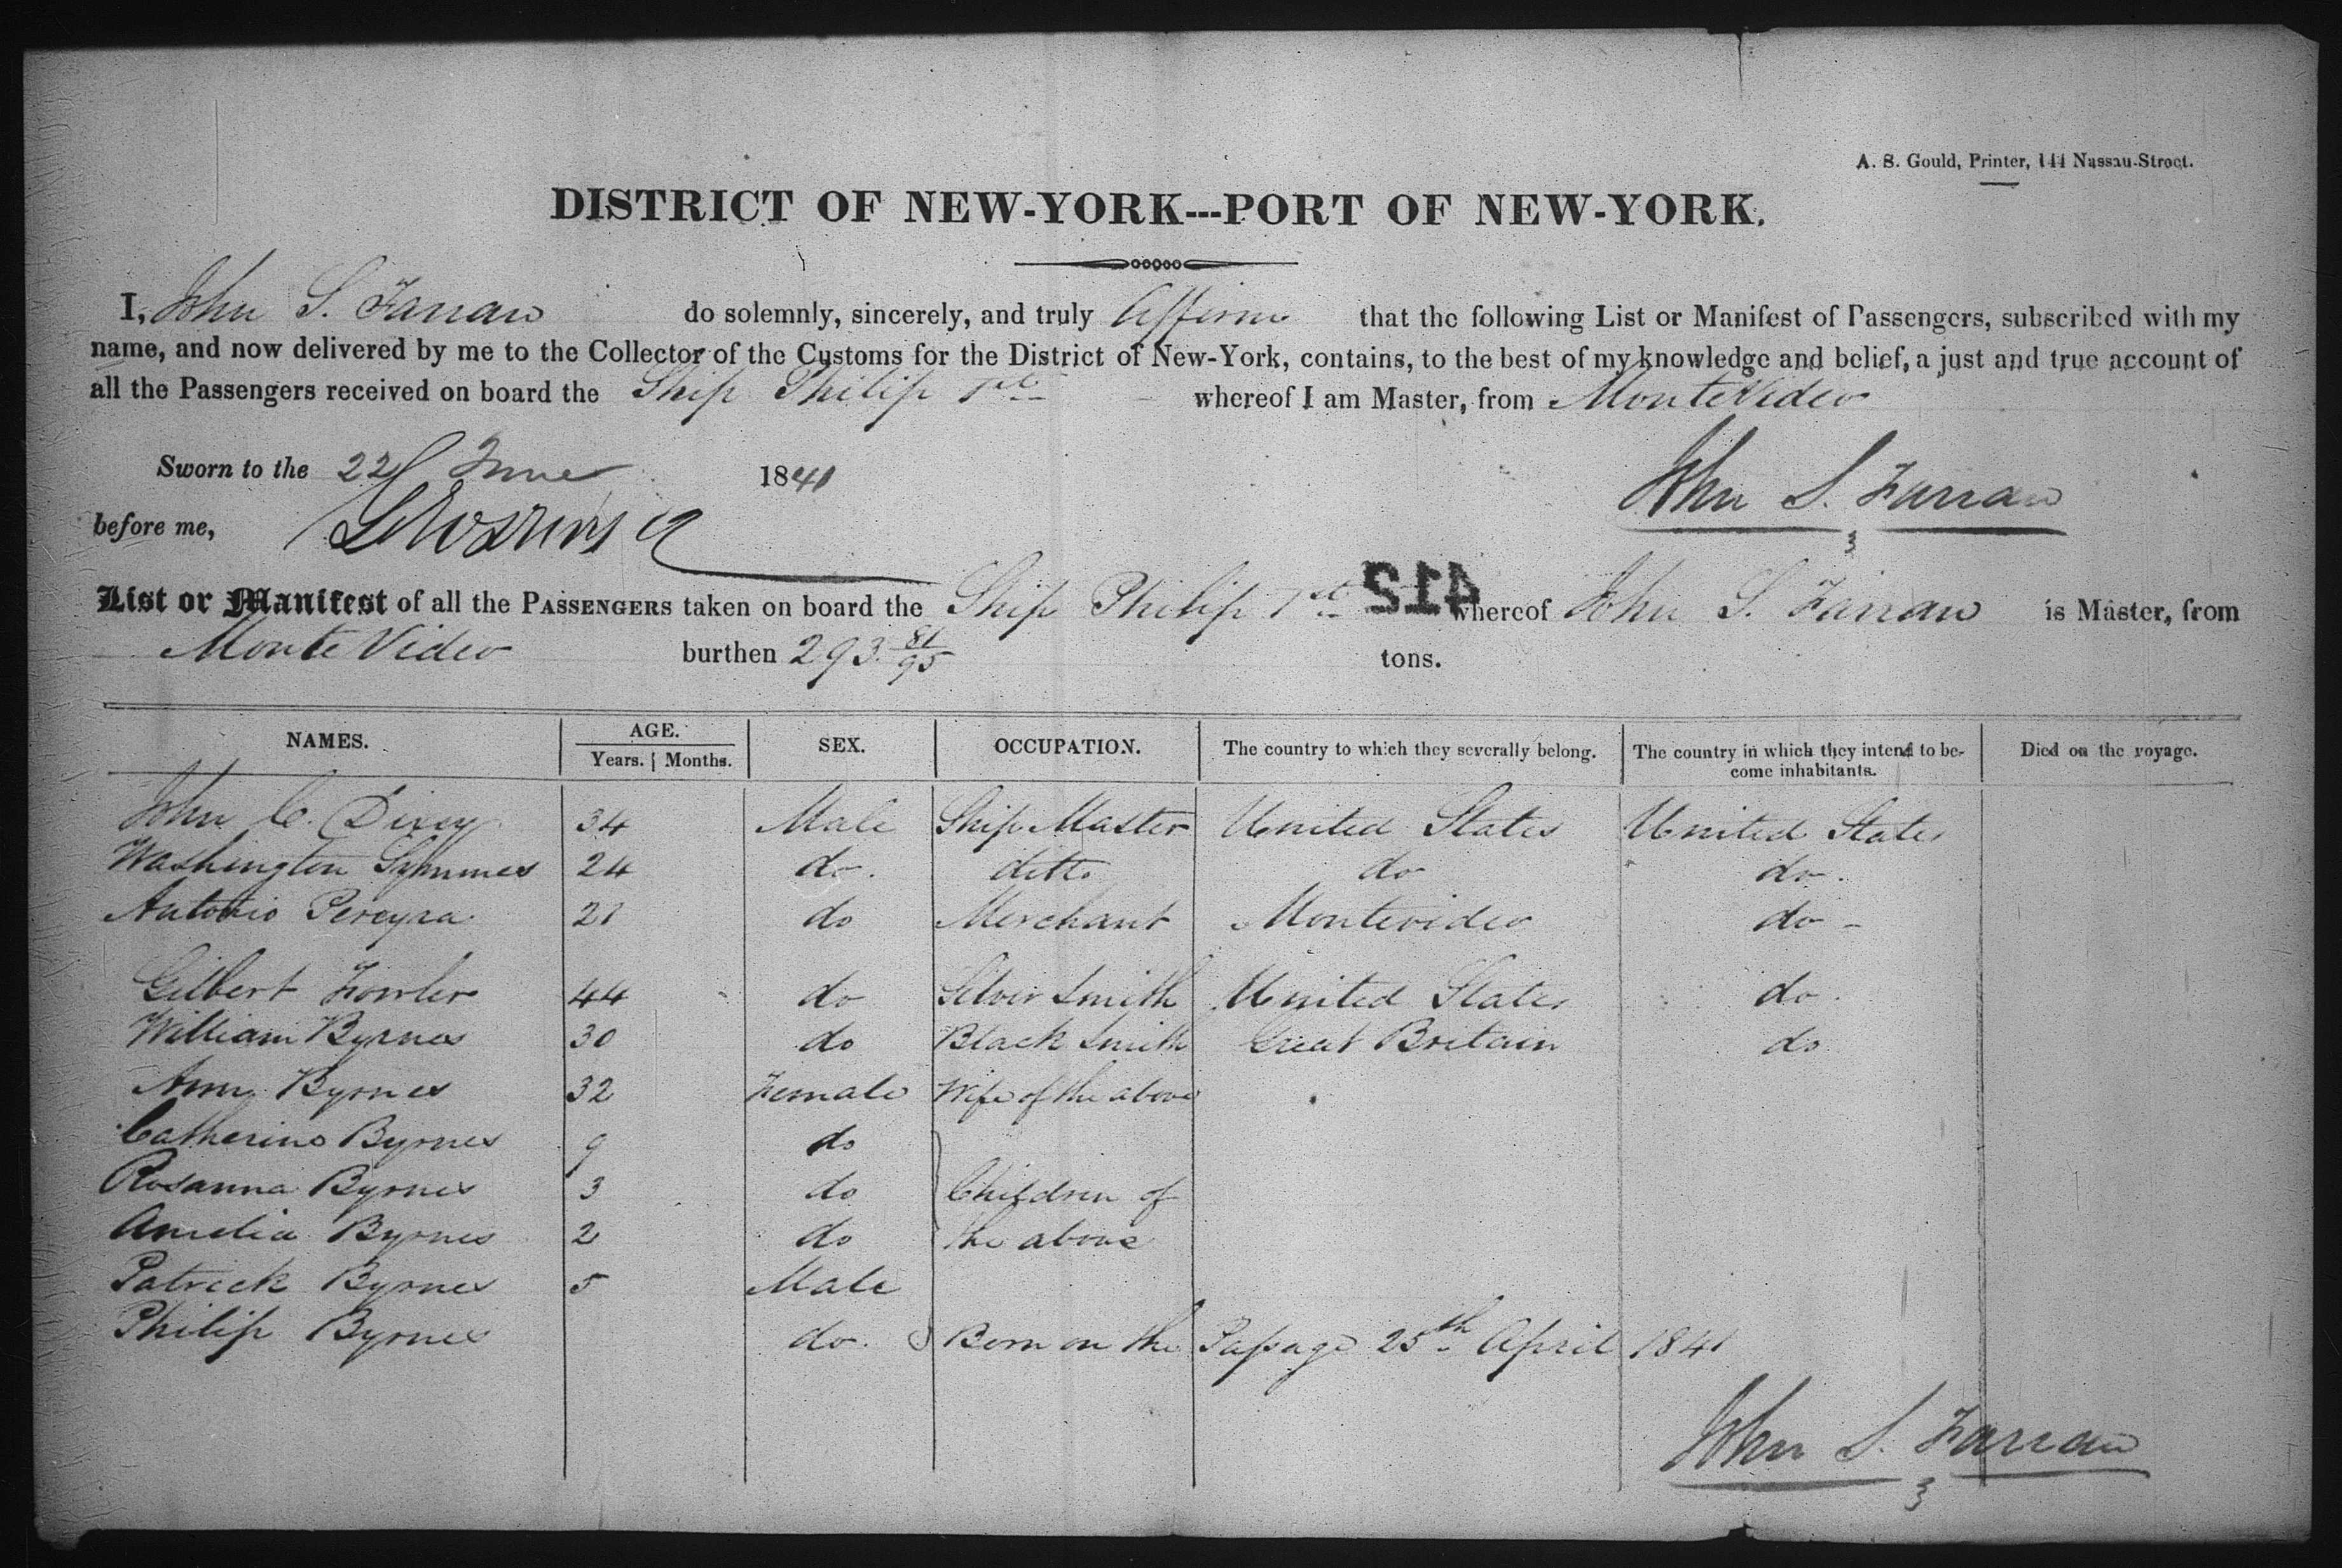 A. S. Gould, Printer, 144 Nassau-Street.
DISTRICT OF NEW-YORK---PORT OF NEW-YORK.
I, John S. Farran do solemnly, sincerely, and truly Affirm that the following List or Manifest of Passengers, subscribed with my
name, and now delivered by me to the Collector of the Customs for the District of New-York, contains, to the best of my knowledge and belief, a just and true account of
all the Passengers received on board the Ship Philip 1st whereof I am Master, from Monte Video
Sworn to the 22d June 1841
before me,
John S. Farran
List or Manifest of all the PASSENGERS taken on board the Ship Philip 1st 412 whereof John S. Farran is Master, from
Monte Video burthen 293 81/95 tons.
NAMES. AGE. SEX. OCCUPATION. The country to which they severally belong. The country in which they intend to be- Died on the voyage.
Years. Months. come inhabitants.
John C. Dixey 34 Male Ship Master United States United States
Washington Symmes 24 do. ditto do do.
Antonio Pereyra 21 do Merchant Montevideo do -
Gilbert Fowler 44 do Silver Smith United States do.
William Byrnes 30 do Black Smith Great Britain do
Ann Byrnes 32 Female Wife of the above
Catherine Byrnes 9 do
Rosanna Byrnes 3 do Children of
Amelia Byrnes 2 do the above
Patrick Byrnes 5 Male
Philip Byrnes do. Born on the Passage 25th April 1841
John S. Farran